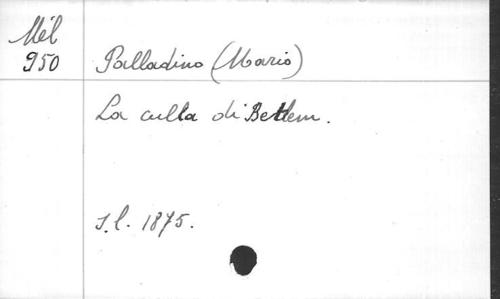 Mél
950
Palladino (Mario)
La culla di Betlem.
S.l. 1875.